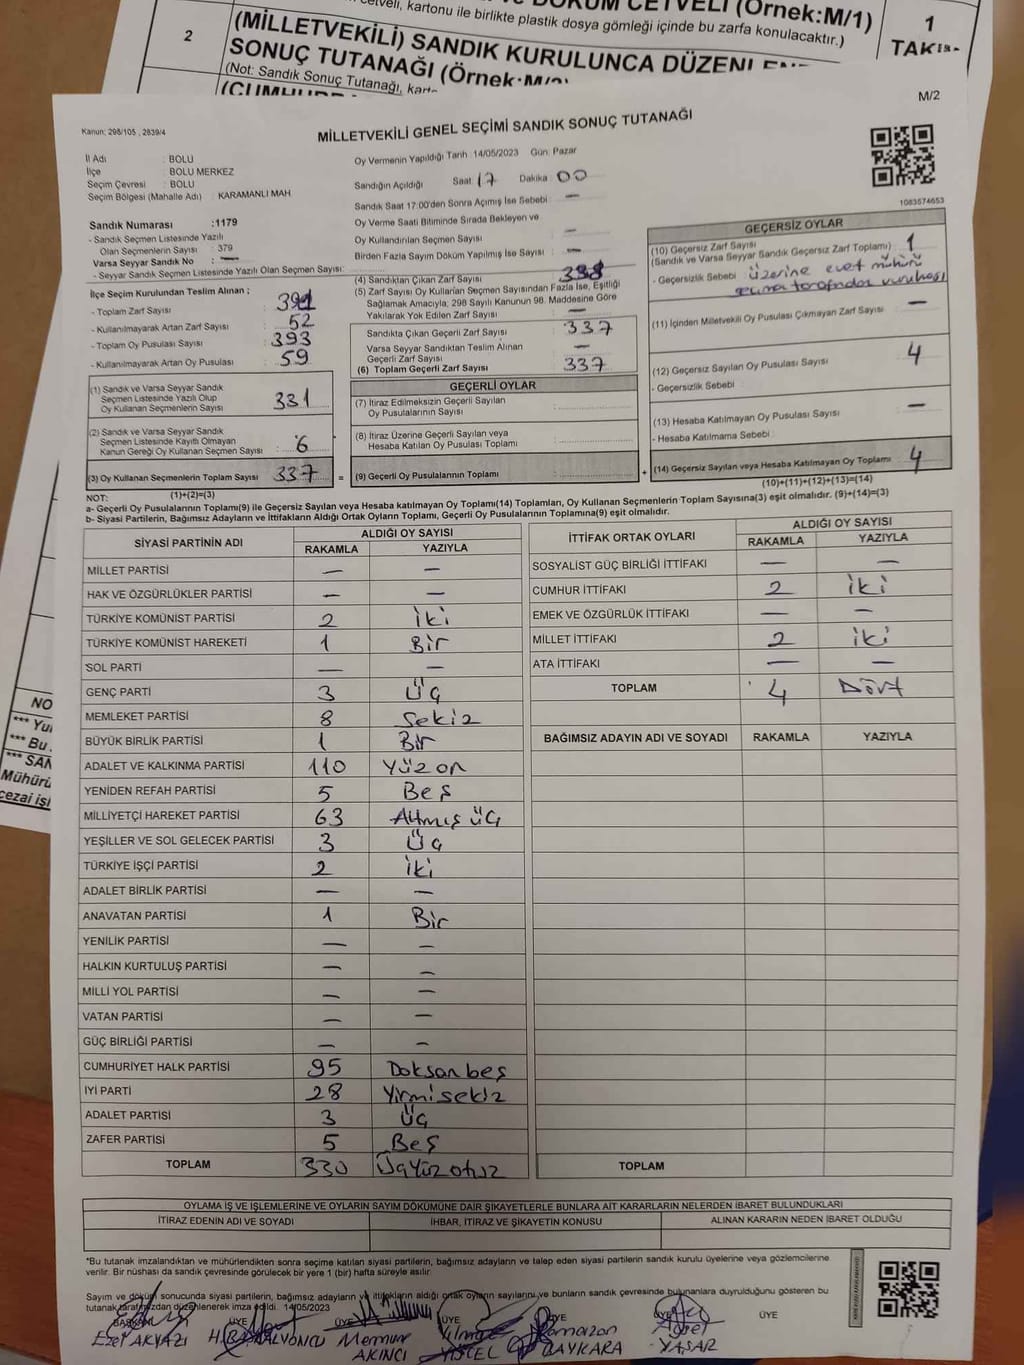 DÖKÜM CETVELİ (Örnek:M/1)
cetveli, kartonu ile birlikte plastik dosya gömleği içinde bu zarfa konulacaktır.)
1
2
(MİLLETVEKİLİ) SANDIK KURULUNCA DÜZENLEN
SONUÇ TUTANAĞI (Örnek:M/2)
(Not: Sandık Sonuç Tutanağı,
M/2
Kanun: 298/105 , 2839/4
MİLLETVEKİLİ GENEL SEÇİMİ SANDIK SONUÇ TUTANAĞI
İl Adı : BOLU
İlçe : BOLU MERKEZ
Seçim Çevresi : BOLU
Seçim Bölgesi (Mahalle Adı) : KARAMANLI MAH
Sandık Numarası :1179
- Sandık Seçmen Listesinde Yazılı
Olan Seçmenlerin Sayısı : 379
Varsa Seyyar Sandık No : —
- Seyyar Sandık Seçmen Listesinde Yazılı Olan Seçmen Sayısı:
İlçe Seçim Kurulundan Teslim Alınan ;
- Toplam Zarf Sayısı :
- Kullanılmayarak Artan Zarf Sayısı : 52
- Toplam Oy Pusulası Sayısı : 393
- Kullanılmayarak Artan Oy Pusulası : 59
(1) Sandık ve Varsa Seyyar Sandık
Seçmen Listesinde Yazılı Olup
Oy Kullanan Seçmenlerin Sayısı : 331
(2) Sandık ve Varsa Seyyar Sandık
Seçmen Listesinde Kayıtlı Olmayan
Kanun Gereği Oy Kullanan Seçmen Sayısı : 6
(3) Oy Kullanan Seçmenlerin Toplam Sayısı : 337
Oy Vermenin Yapıldığı Tarih 14/05/2023 Gün: Pazar
Sandığın Açıldığı Saat 17 Dakika 00
Sandık Saat 17:00'den Sonra Açımış İse Sebebi : —
Oy Verme Saati Bitiminde Sırada Bekleyen ve
Oy Kullandırılan Seçmen Sayısı : —
Birden Fazla Sayım Döküm Yapılmış İse Sayısı : —
(4) Sandıktan Çıkan Zarf Sayısı : 338
(5) Zarf Sayısı Oy Kullanan Seçmen Sayısından Fazla İse, Eşitliği
Sağlamak Amacıyla, 298 Sayılı Kanunun 98. Maddesine Göre
Yakılarak Yok Edilen Zarf Sayısı : —
Sandıkta Çıkan Geçerli Zarf Sayısı : 337
Varsa Seyyar Sandıktan Teslim Alınan
Geçerli Zarf Sayısı : —
(6) Toplam Geçerli Zarf Sayısı : 337
GEÇERLİ OYLAR
(7) İtiraz Edilmeksizin Geçerli Sayılan
Oy Pusulalarının Sayısı :
(8) İtiraz Üzerine Geçerli Sayılan veya
Hesaba Katılan Oy Pusulası Toplamı :
= (9) Geçerli Oy Pusulalarının Toplamı :
1083574653
GEÇERSİZ OYLAR
(10) Geçersiz Zarf Sayısı : 1
(Sandık ve Varsa Seyyar Sandık Geçersiz Zarf Toplamı)
- Geçersizlik Sebebi : üzerine evet mühürü
tarafından vurulması
(11) İçinden Milletvekili Oy Pusulası Çıkmayan Zarf Sayısı : —
(12) Geçersiz Sayılan Oy Pusulası Sayısı : 4
- Geçersizlik Sebebi
(13) Hesaba Katılmayan Oy Pusulası Sayısı : —
- Hesaba Katılmama Sebebi :
+ (14) Geçersiz Sayılan veya Hesaba Katılmayan Oy Toplamı : 4
NOT: (1)+(2)=(3)
(10)+(11)+(12)+(13)=(14)
a- Geçerli Oy Pusulalarının Toplamı(9) ile Geçersiz Sayılan veya Hesaba katılmayan Oy Toplamı(14) Toplamları, Oy Kullanan Seçmenlerin Toplam Sayısına(3) eşit olmalıdır. (9)+(14)=(3)
b- Siyasi Partilerin, Bağımsız Adayların ve İttifakların Aldığı Ortak Oyların Toplamı, Geçerli Oy Pusulalarının Toplamına(9) eşit olmalıdır.
SİYASİ PARTİNİN ADI
ALDIĞI OY SAYISI
RAKAMLA YAZIYLA
MİLLET PARTİSİ — —
HAK VE ÖZGÜRLÜKLER PARTİSİ — —
TÜRKİYE KOMÜNİST PARTİSİ 2 iki
TÜRKİYE KOMÜNİST HAREKETİ 1 Bir
SOL PARTİ — —
GENÇ PARTİ 3 Üç
MEMLEKET PARTİSİ 8 Sekiz
BÜYÜK BİRLİK PARTİSİ 1 Bir
ADALET VE KALKINMA PARTİSİ 110 Yüzon
YENİDEN REFAH PARTİSİ 5 Beş
MİLLİYETÇİ HAREKET PARTİSİ 63 Altmış üç
YEŞİLLER VE SOL GELECEK PARTİSİ 3 Üç
TÜRKİYE İŞÇİ PARTİSİ 2 iki
ADALET BİRLİK PARTİSİ — —
ANAVATAN PARTİSİ 1 Bir
YENİLİK PARTİSİ — —
HALKIN KURTULUŞ PARTİSİ — —
MİLLİ YOL PARTİSİ — —
VATAN PARTİSİ — —
GÜÇ BİRLİĞİ PARTİSİ — —
CUMHURİYET HALK PARTİSİ 95 Doksanbeş
İYİ PARTİ 28 Yirmisekiz
ADALET PARTİSİ 3 Üç
ZAFER PARTİSİ 5 Beş
TOPLAM 330 Üçyüzotuz
İTTİFAK ORTAK OYLARI
ALDIĞI OY SAYISI
RAKAMLA YAZIYLA
SOSYALİST GÜÇ BİRLİĞİ İTTİFAKI — —
CUMHUR İTTİFAKI 2 iki
EMEK VE ÖZGÜRLÜK İTTİFAKI — —
MİLLET İTTİFAKI 2 iki
ATA İTTİFAKI — —
TOPLAM 4 Dört
BAĞIMSIZ ADAYIN ADI VE SOYADI RAKAMLA YAZIYLA
TOPLAM
OYLAMA İŞ VE İŞLEMLERİNE VE OYLARIN SAYIM DÖKÜMÜNE DAİR ŞİKAYETLERLE BUNLARA AİT KARARLARIN NELERDEN İBARET BULUNDUKLARI
İTİRAZ EDENİN ADI VE SOYADI İHBAR, İTİRAZ VE ŞİKAYETİN KONUSU ALINAN KARARIN NEDEN İBARET OLDUĞU
*Bu tutanak imzalandıktan ve mühürlendikten sonra seçime katılan siyasi partilerin, bağımsız adayların ve talep eden siyasi partilerin sandık kurulu üyelerine veya gözlemcilerine
verilir. Bir nüshası da sandık çevresinde görülecek bir yere 1 (bir) hafta süreyle asılır.
Sayım ve döküm sonucunda siyasi partilerin, bağımsız adayların ve ittifakların aldığı ortak oyların sayılarını ve bunların sandık çevresinde bulunanlara duyrulduğunu gösteren bu
tutanak tarafımızdan düzenlenerek imza edildi. 14/05/2023
BAŞKAN ÜYE ÜYE ÜYE ÜYE ÜYE ÜYE
Ezel AKYAZI
Memur AKINCI
Yılmaz YÜCEL
Ramazan BAYKARA
YAŞAR